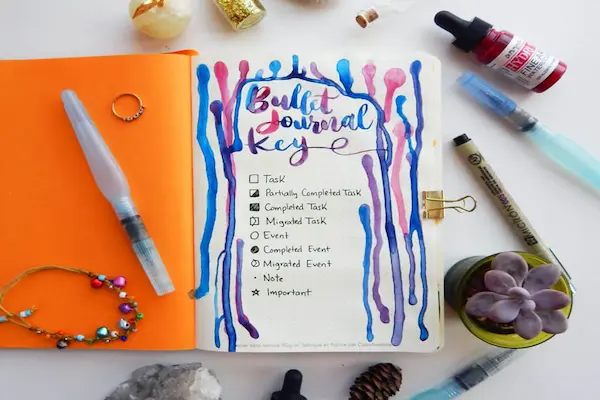 Bullet
Journal
Key
Task
Partially Completed Task
Completed Task
Migrated Task
Event
Completed Event
Migrated Event
Note
Important
HYDRUS
FINE